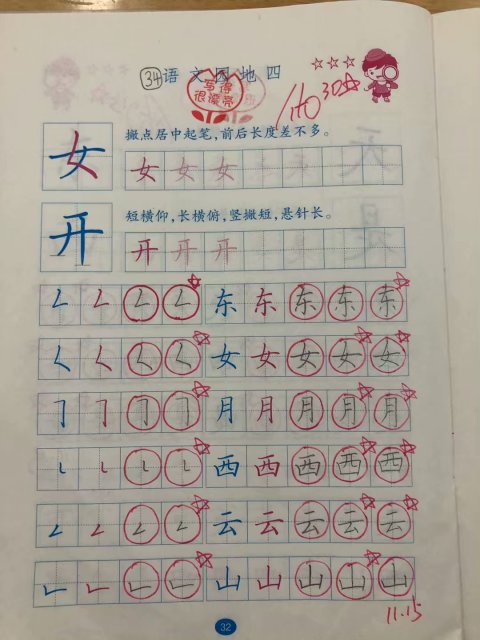 34 语文园地四
写得
很漂亮
女 撇点居中起笔,前后长度差不多。
女 女 女
开 短横仰,长横俯,竖撇短,悬针长。
开 开 开
东 东 东 东 东
女 女 女 女 女
月 月 月 月 月
西 西 西 西 西
云 云 云 云 云
山 山 山 山 山
11.15
32